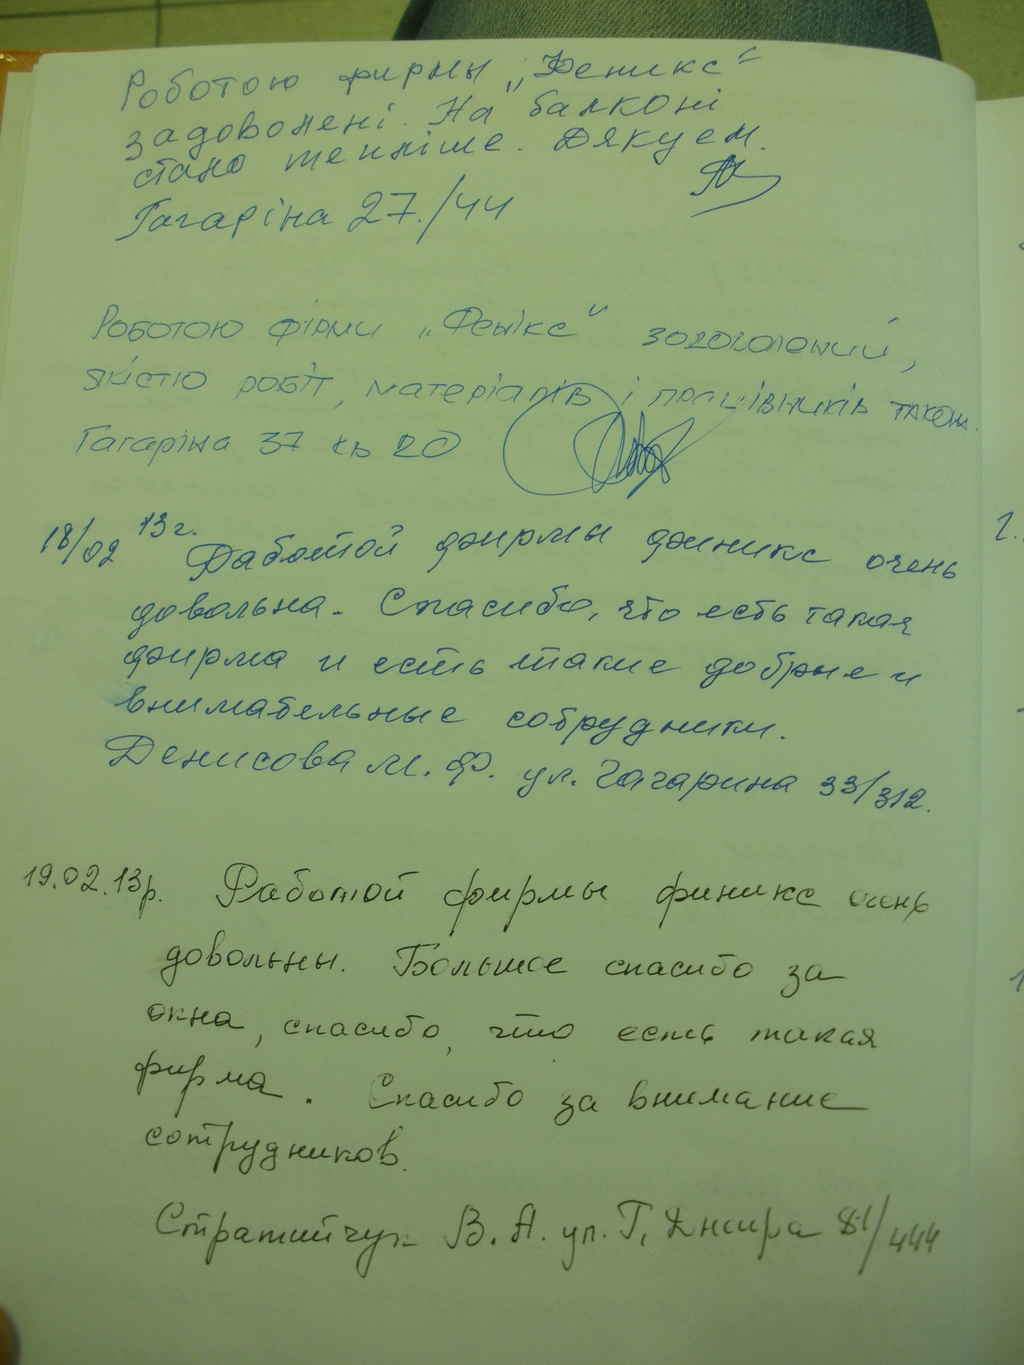 Роботою фирмы „Феникс“
задоволені. На балконі
стало тепліше. Дякуєм.
Гагаріна 27./44
Роботою фірми „Фенікс“ задоволений,
якістю робіт, матеріалів і працівників також.
Гагаріна 37 кв 20
18/02 13г. Работой фирмы финикс очень
довольна. Спасибо, что есть такая
фирма и есть такие добрые и
внимательные собрудники.
Денисова М. Ф. ул. Гагарина 33/312.
19.02.13р. Работой фирмы финикс очень
довольны. Большое спасибо за
окна, спасибо, что есть такая
фирма. Спасибо за внимание
сотрудников.
В. А. ул. Г. Днепра 81/444